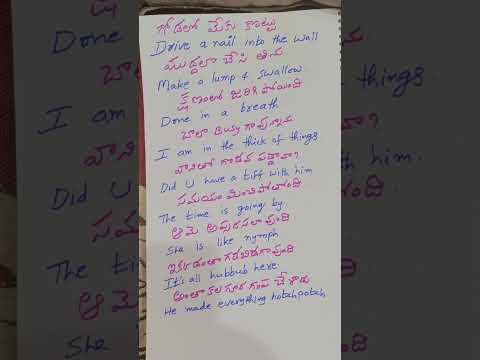 గోడలో మేకు కొట్టు
Drive a nail into the wall
ముద్దలా చేసి తిను
Make a lump & swallow
క్షణంలో జరిగి పోయింది
Done in a breath
చాలా Busy గావున్నాను
I am in the thick of things
వానితో గొడవ పడ్డావా?
Did U have a tiff with him
సమయం మించిపోతోంది
The time is going by.
ఆమె అప్సరసలా వుంది
She is like nymph
ఇక్కడంతా గడబిడగావుంది
It's all hubbub here
అంతా కలగూర గంప చేశాడు
He made everything hotchpotch